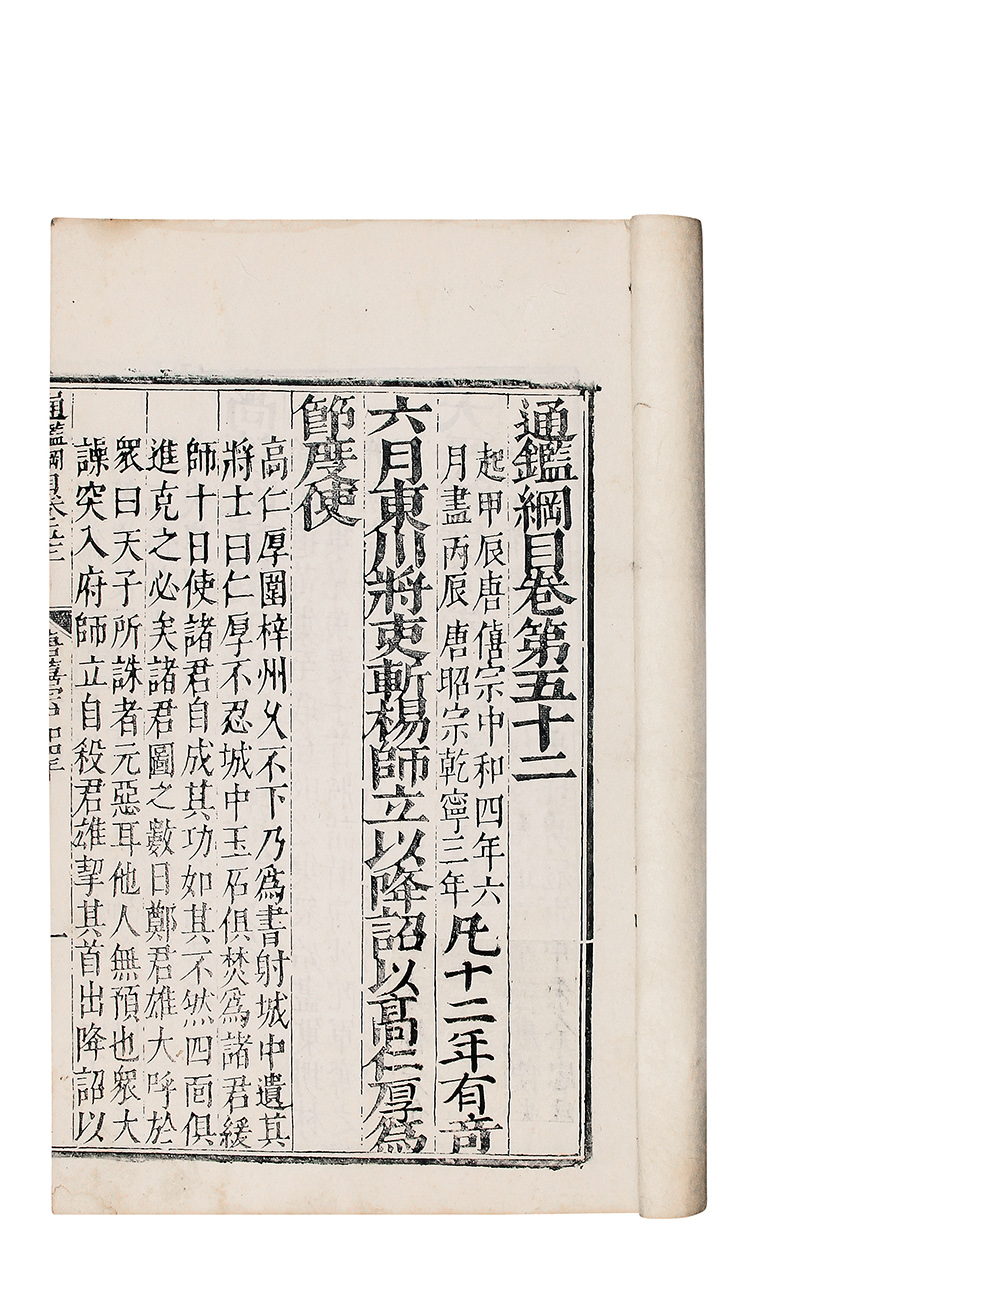 通鑑綱目卷第五十二
起甲辰唐僖宗中和四年六
月盡丙辰唐昭宗乾寧三年
凡十二年有竒
六月東川將吏斬楊師立以降詔以高仁厚爲
節度使
高仁厚圍梓州乆不下乃爲書射城中遺其
將士曰仁厚不忍城中玉石俱焚爲諸君緩
師十日使諸君自成其功如其不然四面俱
進克之必矣諸君圖之數日鄭君雄大呼於
衆曰天子所誅者元惡耳他人無預也衆大
譟突入府師立自殺君雄挈其首出降詔以
通鑑綱目卷五十二
一